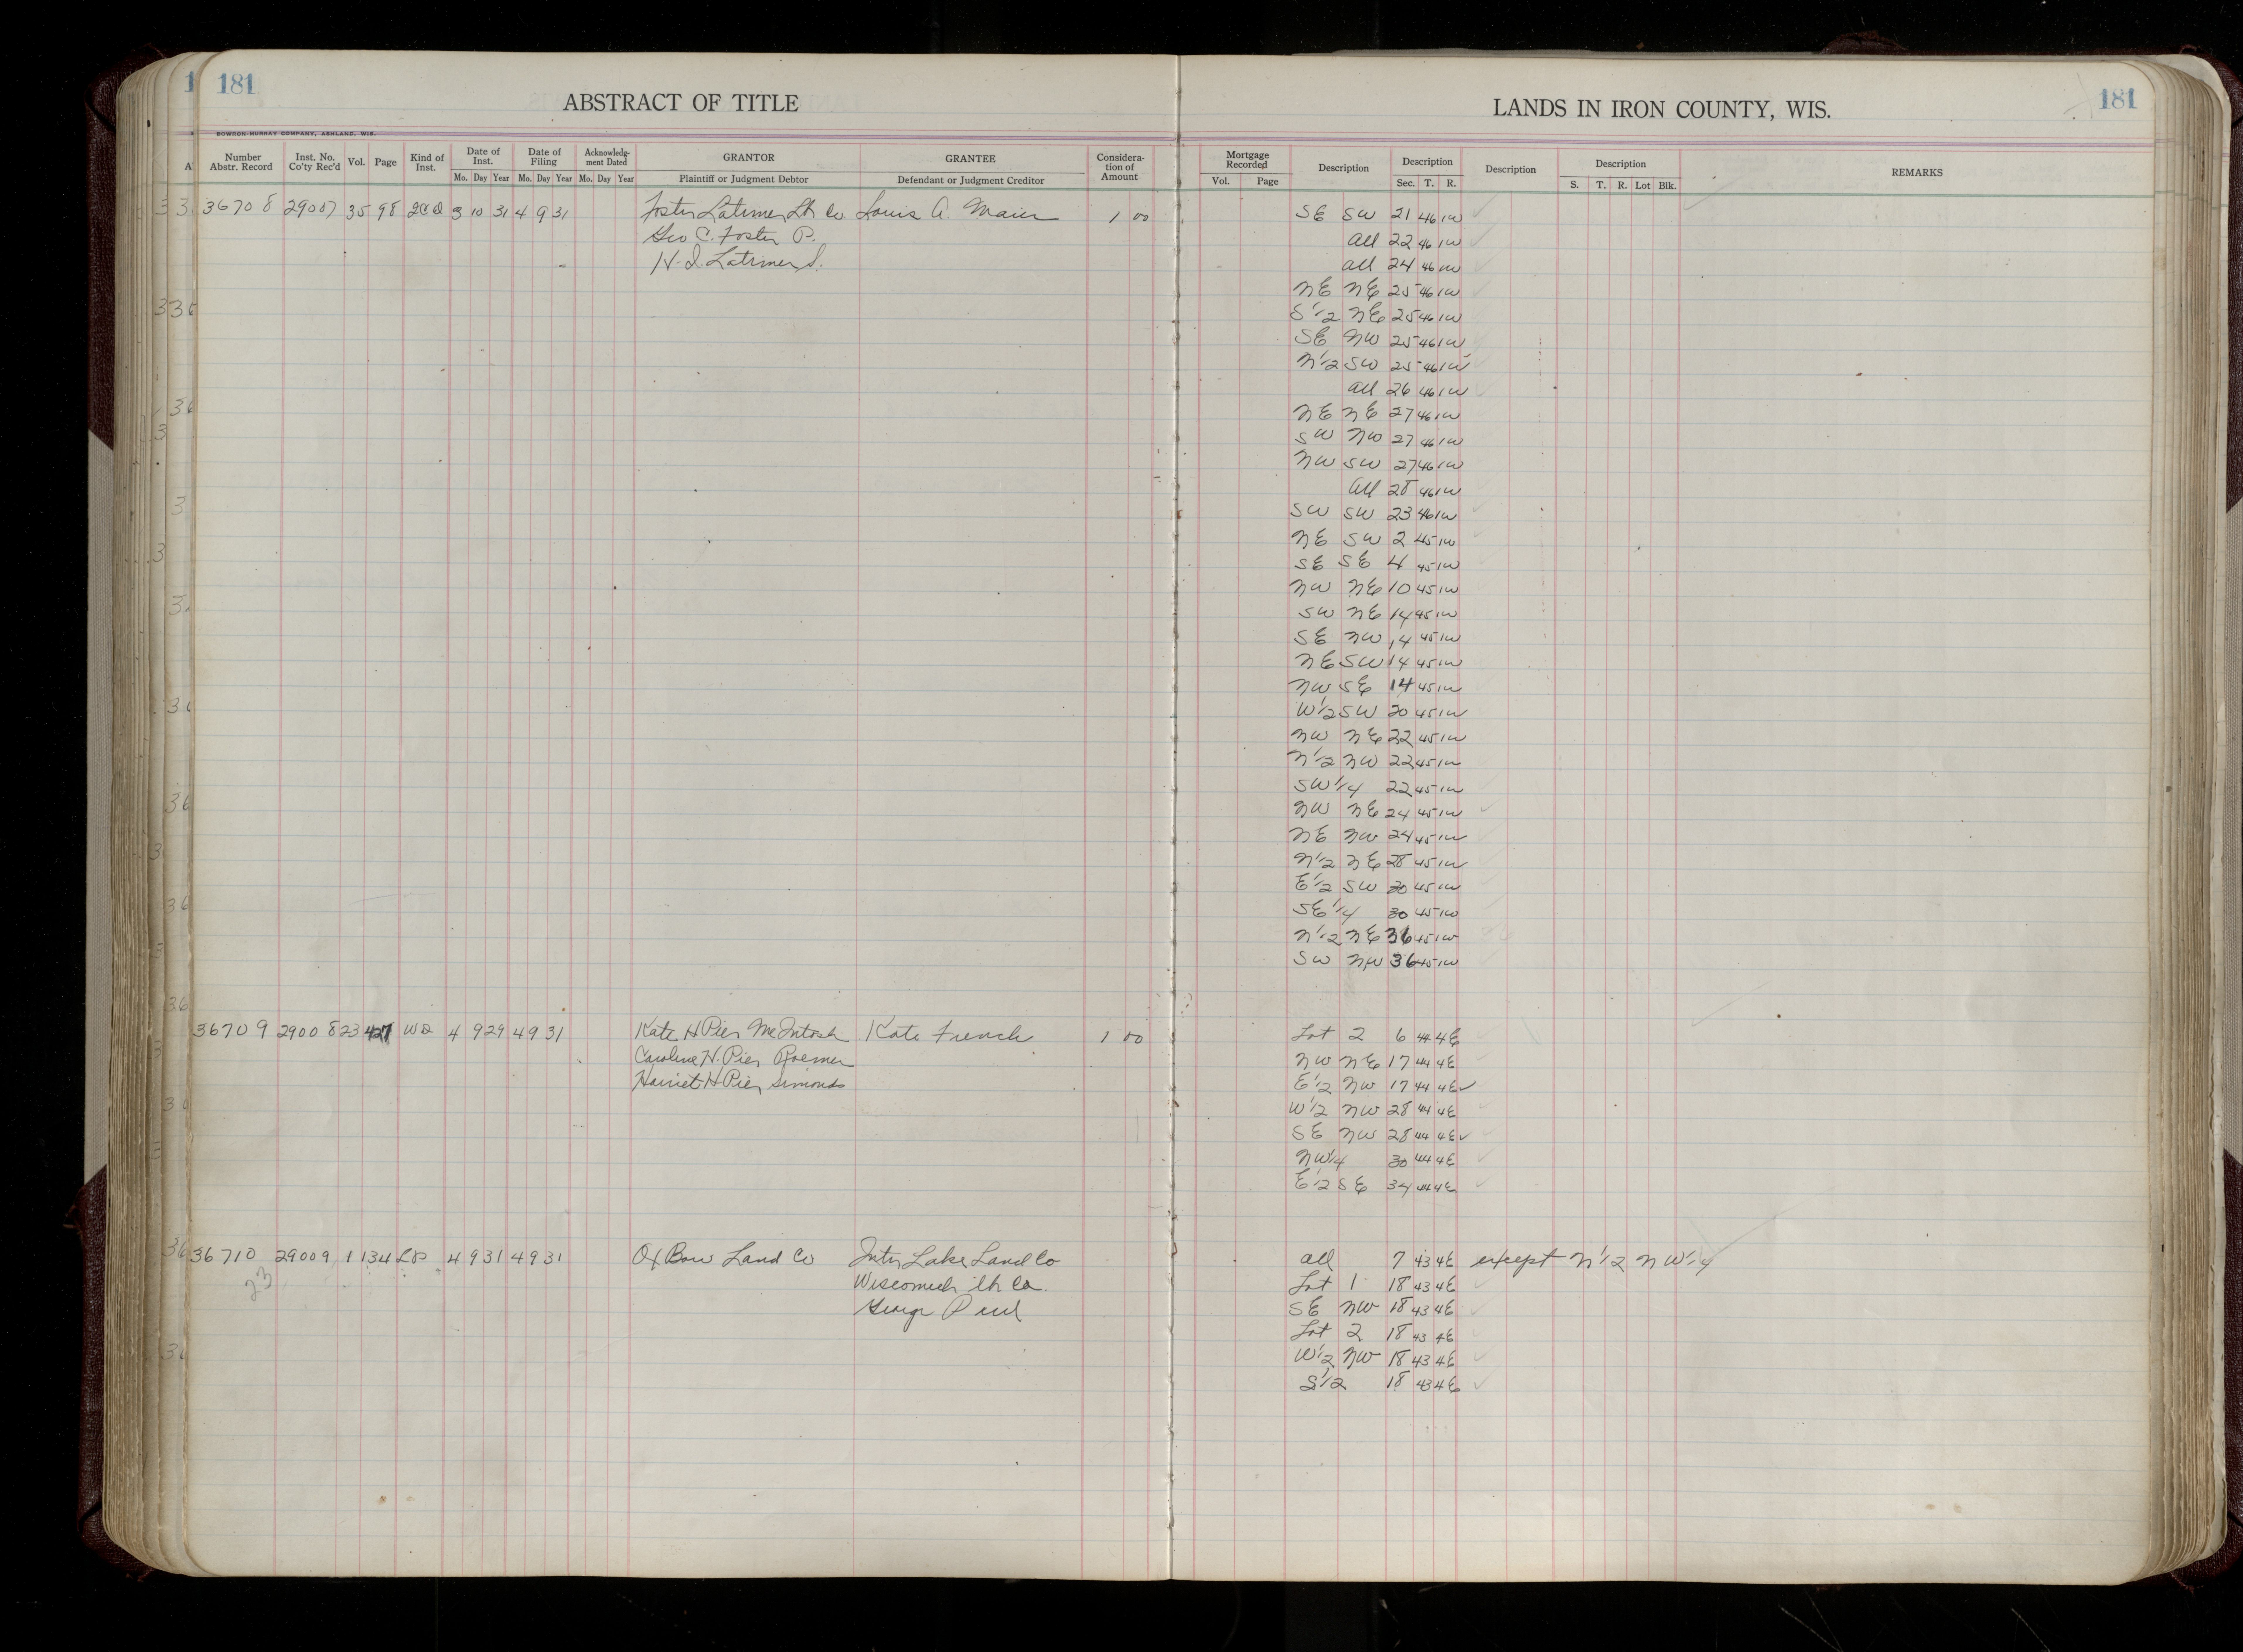 181
ABSTRACT OF TITLE
LANDS IN IRON COUNTY, WIS.
181
BOWRON-MURRAY COMPANY, ASHLAND, WIS.
Number Abstr. Record | Inst. No. Co'ty Rec'd | Vol. | Page | Kind of Inst. | Date of Inst. Mo. Day Year | Date of Filing Mo. Day Year | Acknowledg-ment Dated Mo. Day Year | GRANTOR Plaintiff or Judgment Debtor | GRANTEE Defendant or Judgment Creditor | Considera-tion of Amount | Mortgage Recorded Vol. Page | Description | Description Sec. T. R. | Description | Description S. T. R. Lot Blk. | REMARKS
36708 29007 35 98 QCD 3 10 31 4 9 31 Foster Latimer Lbr Co Louis A. Maier 1 00 SE SW 21 46 1W
Geo C. Foster P. all 22 46 1W
H. I. Latimer S. all 24 46 1W
NE NE 25 46 1W
S1/2 NE 25 46 1W
SE NW 25 46 1W
N1/2 SW 25 46 1W
all 26 46 1W
NE NE 27 46 1W
SW NW 27 46 1W
NW SW 27 46 1W
all 28 46 1W
SW SW 23 46 1W
NE SW 2 45 1W
SE SE 4 45 1W
NW NE 10 45 1W
SW NE 14 45 1W
SE NW 14 45 1W
NE SW 14 45 1W
NW SE 14 45 1W
W1/2 SW 20 45 1W
NW NE 22 45 1W
N1/2 NW 22 45 1W
SW1/4 22 45 1W
NW NE 24 45 1W
NE NW 24 45 1W
N1/2 NE 28 45 1W
E1/2 SW 30 45 1W
SE1/4 30 45 1W
N1/2 NE 36 45 1W
SW NW 36 45 1W
36709 29008 23 427 WD 4 9 29 4 9 31 Kate H Pier McIntosh Kate French 1 00 Lot 2 6 44 4E
Caroline H. Pier Roemer NW NE 17 44 4E
Harriet H Pier Simonds E1/2 NW 17 44 4E ✓
W1/2 NW 28 44 4E
SE NW 28 44 4E ✓
NW1/4 30 44 4E
E1/2 SE 34 44 4E
36710 29009 1 134 LP 4 9 31 4 9 31 Ox Bow Land Co Inter Lake Land Co all 7 43 4E except N1/2 NW1/4
23 Lbr Co. Lot 1 18 43 4E
George SE NW 18 43 4E
Lot 2 18 43 4E
W1/2 NW 18 43 4E
S1/2 18 43 4E